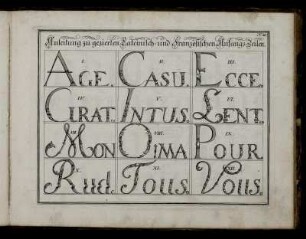 Anleitung zu gezierten Lateinisch- und Französischen Anfangs-Zeilen.
I. II. III.
AGE. CASU. ECCE.
IV. V. VI.
GIRAT. INTUS. LENT.
VII. VIII. IX.
MON OIMA POUR.
X. XI. XII.
Rud. Tous. Vous.